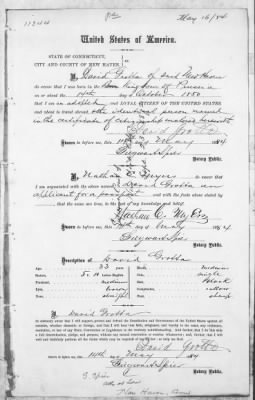 11244
May 16/84
United States of America.
STATE OF CONNECTICUT,
CITY AND COUNTY OF NEW HAVEN
I, David Grotta of said New Haven
do swear that I was born in the Kingdom of Prussia
on or about the October 1850
that I am an adopted and LOYAL CITIZEN OF THE UNITED STATES
and about to travel abroad, the identical person named
in the certificate of citizenship
David Grotta
Sworn to before me, this 14th day of May 1884
Notary Public.
I, Nathan C. Myers
I am acquainted with the above named David Grotta an
applicant for a passport and with the facts above stated by
him, and that the same are true, to the best of my knowledge and belief.
Nathan C. Myers
Sworn to before me, this 14th day of May 1884
Notary Public.
Description of David Grotta
Age, 33 years
Mouth, medium
Stature, 5.
Chin, single
Forehead, medium
Hair, black
Eyes,
Complexion,
Nose,
Face, sharp
I, David Grotta
do solemnly swear that I will support, protect and defend the Constitution and Government of the United States against all
enemies, whether domestic or foreign, and that I will bear true faith, allegiance, and loyalty to the same, any ordinance,
resolution, or law of any State, Convention or Legislature to the contrary notwithstanding, and further that I do this with
a full determination, pledge, and purpose, without any mental reservation or evasion whatsoever; and further, that I will
well and faithfully perform all the duties which may be required of me by law. So help me God.
David Grotta
Sworn to before me, this 14th day of May 1884
Notary Public.
Atty at Law
New Haven, Conn